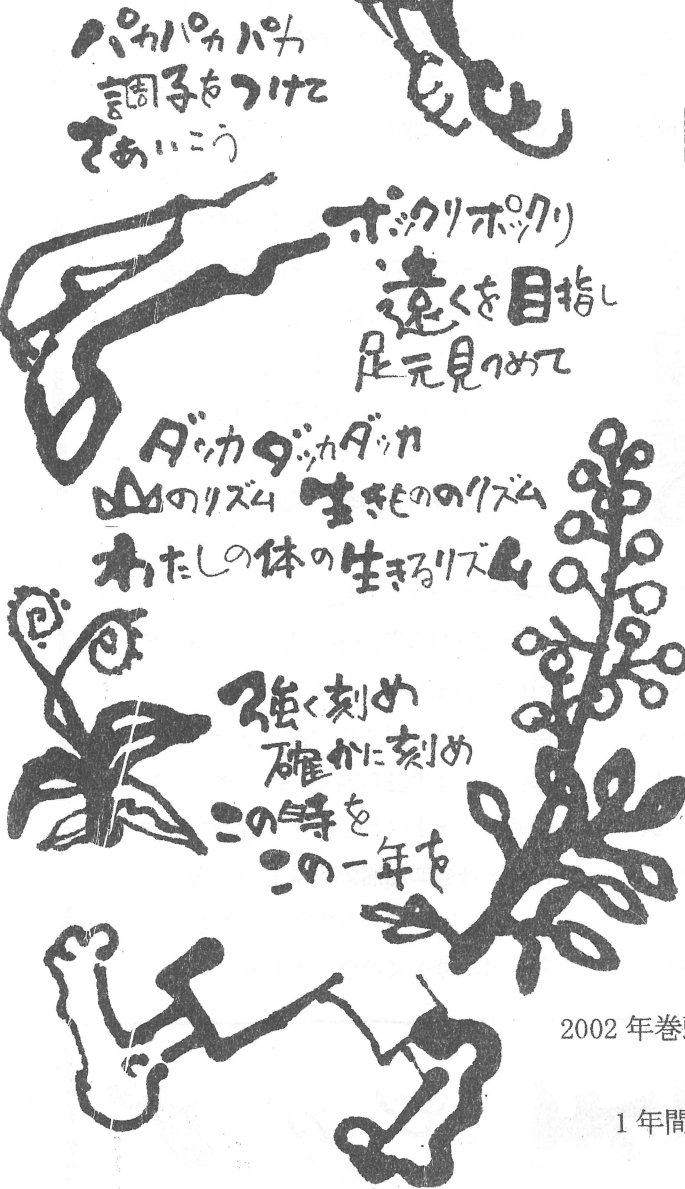 パカパカパカ
調子をつけて
さあいこう
ポックリポックリ
遠くを目指し
足元見つめて
ダッカダッカダッカ
山のリズム 生きもののリズム
わたしの体の生きるリズム
強く刻め
確かに刻め
この時を
この一年を
2002年巻
1年間